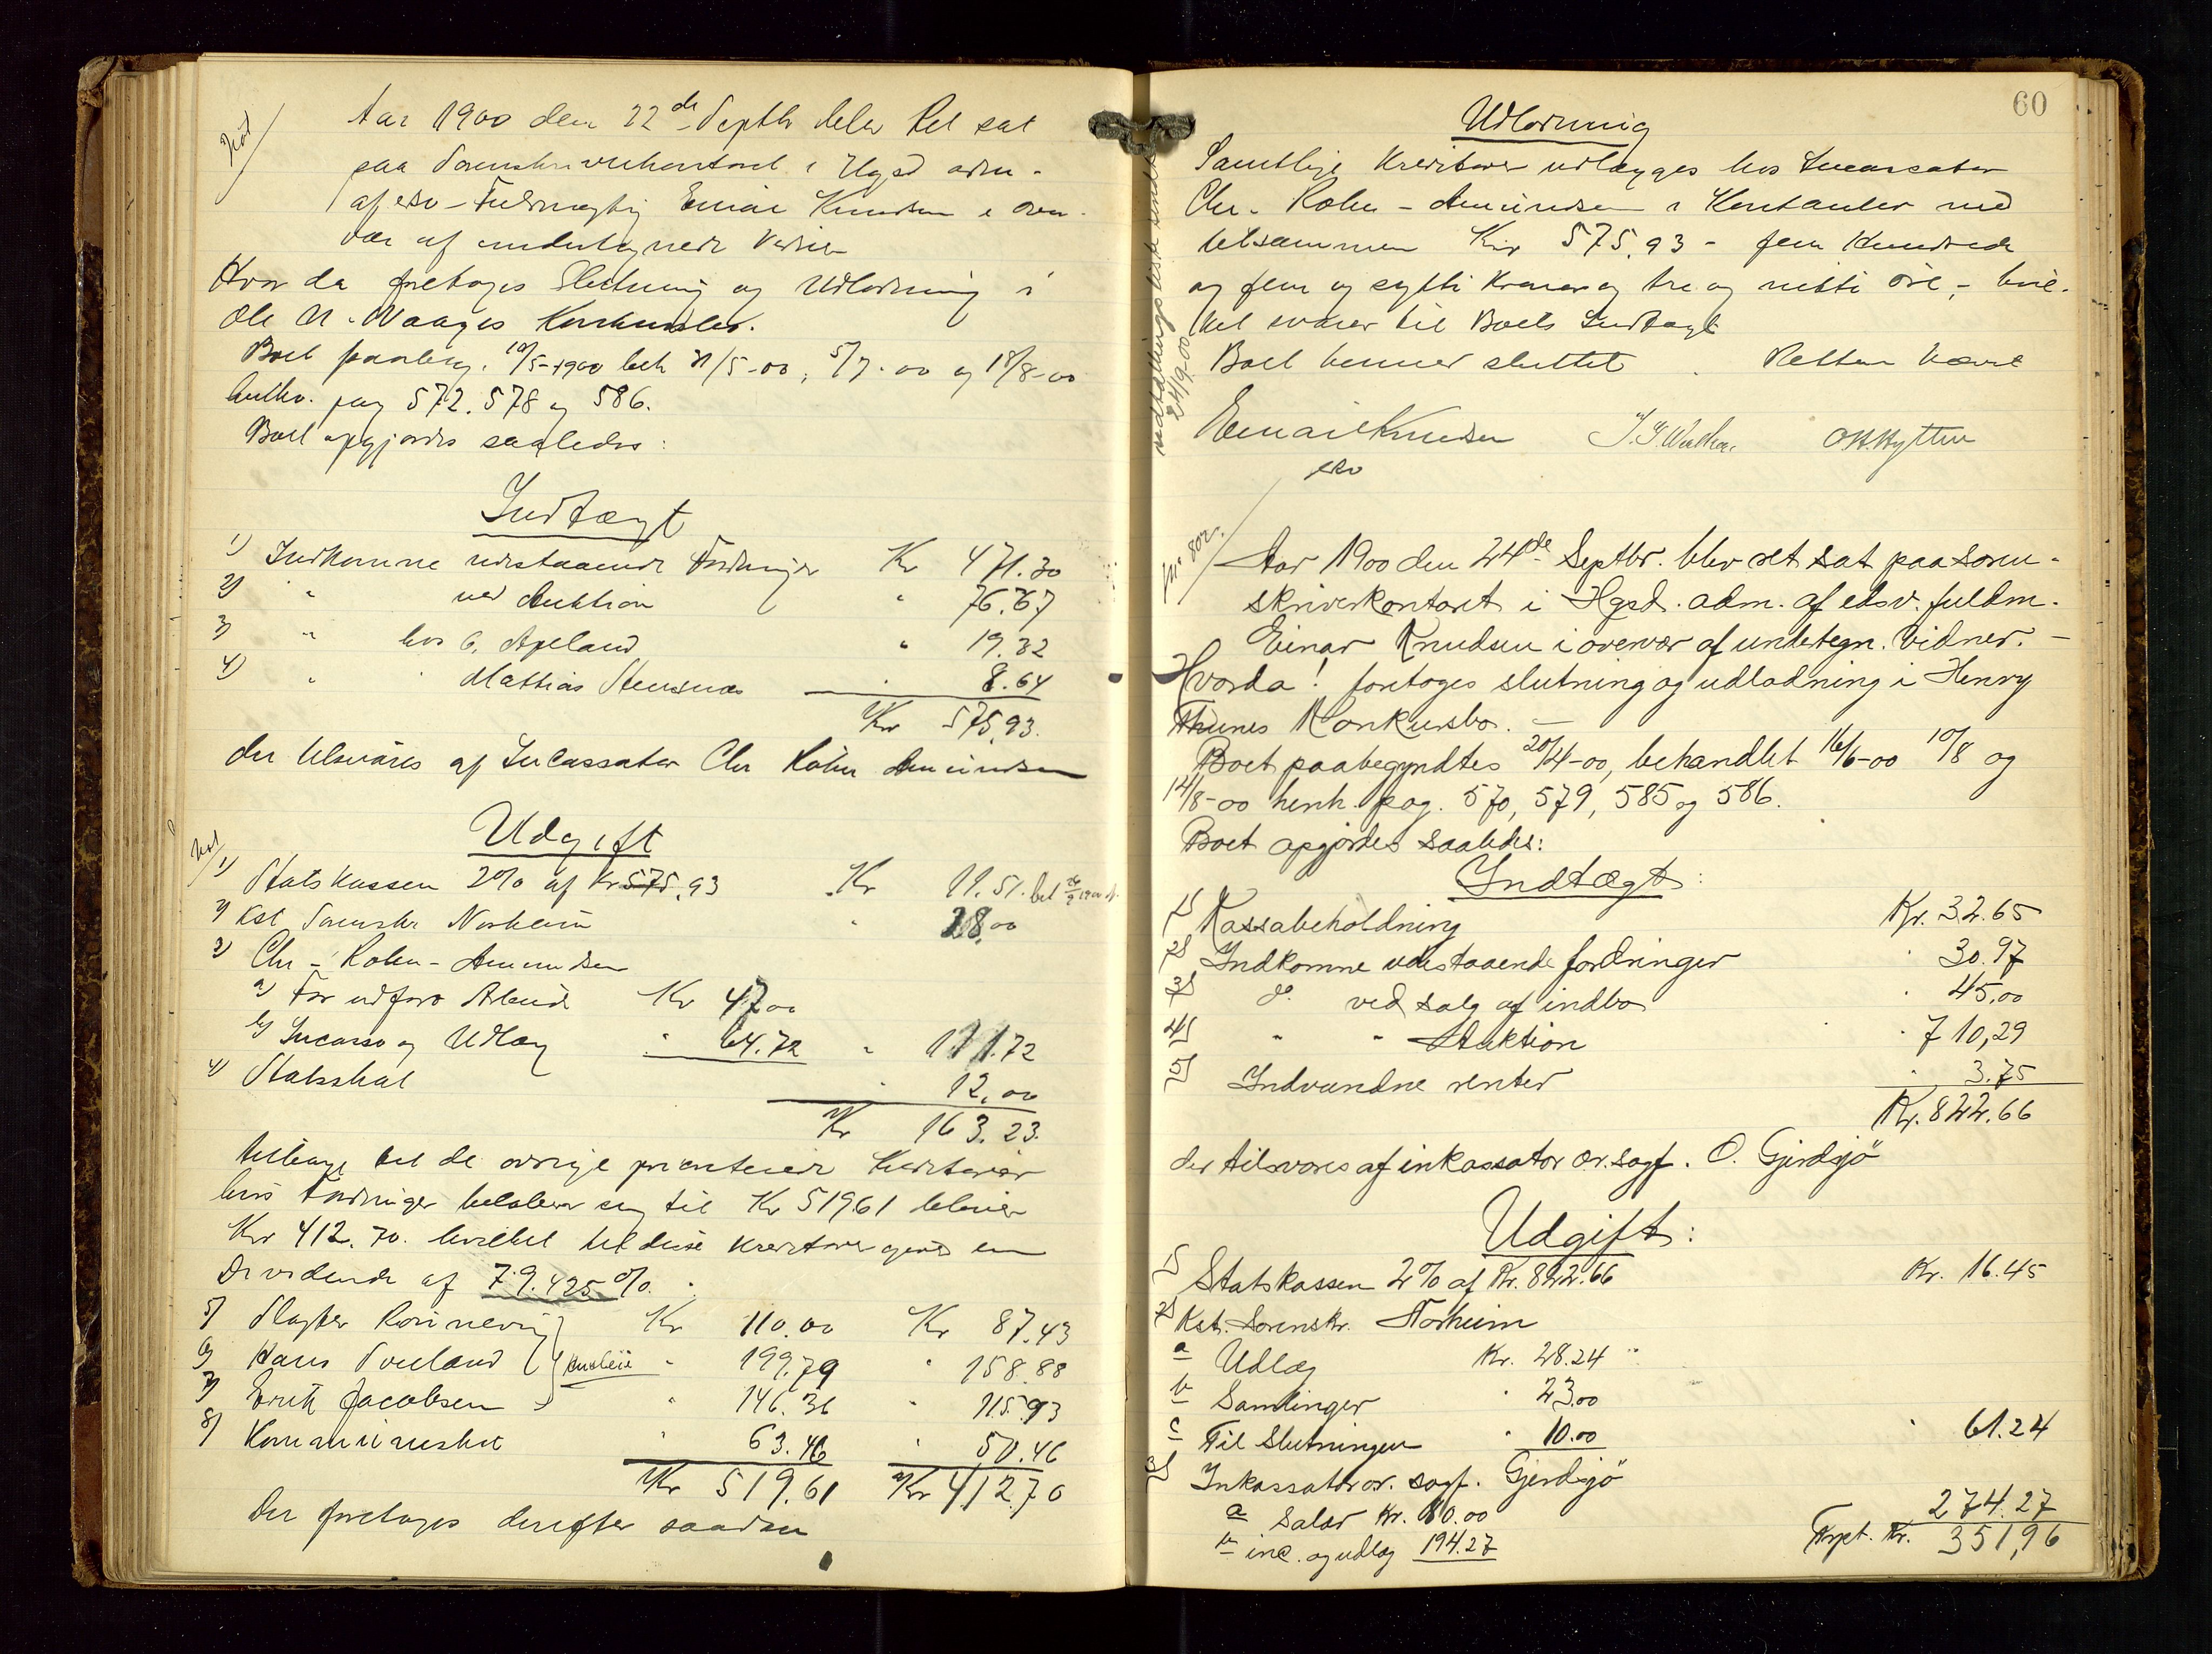 Aar 1900 den 22de Septbr blev Ret sat
paa Sorenskriverkontoret i Hgsd adm.
af edsv. Fuldmægtig Einar Knudsen i over-
vær af undertegnede Vidner
Hvor da foretoges Slutning og Udlodning i
Ole N. Waages Konkursbo.
Boet paabeg. 10/5-1900 beh 31/5-00, 5/7-00 og 18/8-00
henhv. pag 572. 578 og 586.
Boet opgjordes saaledes:
Indtægt
1) Indkomne udestaaende Fordringer Kr 471.30
2) " ved Auktion " 76.67
3) " hos C. Apeland " 19.32
4) " " Mathias Stensnæs " 8.64
Kr 575.93.
der tilsvares af Incassator Chr Holm Amundsen
Udgift
1) Statskassen 2% af Kr 575.93 Kr 11.51. bet
2) Kst Sorenskr Norheim " 28.00
3) Chr. Holm-Amundsen
a) For udført Arbeid Kr 47.00
b) Incasso og Udlæg " 64.72 " 111.72
4) Statsskat " 12.00
Kr 163.23.
tilbage til de øvrige prioriterede Kreditorer
hvis Fordringer beløber sig til Kr 519.61 bliver
Kr 412.70. hvilket til disse Kreditorer giver en
Dividende af 79.425 %.
5) Slagter Rönnevig Kr 110.00 Kr 87.43
6) Hans Sveland Husleie " 199.79 " 158.88
7) Erik Jacobsen " 146.36 " 115.93
8) Kommuneskat " 63.46 " 50.46
Kr 519.61 Kr 412.70
Der foretoges derefter saadan
60
Udlodning
Samtlige Kreditorer udlægges hos Incassator
Chr. Holm-Amundsen i Kontanter med
tilsammen Kr 575.93 - fem Hundrede
og fem og sytti Kroner og tre og nitti Øre, - hvil-
ket svarer til Boets Indtægt
Boet hermed sluttet. Retten hævet
Einar Knudsen O.H.Hytten
edsv
24/9-00
Aar 1900 den 24de Septbr. blev ret sat paa soren-
skriverkontoret i Hgsd. adm. af edsv. fuldm.
Einar Knudsen i overvær af undertegn. vidner. -
Hvorda! foretoges slutning og udlodning i Henry
Thunes Konkursbo. -
Boet paabegyndtes 20/4-00, behandlet 16/6-00 10/8 og
14/8-00 henh. pag. 570, 579, 585 og 586.
Boet opgjordes saaledes:
Indtægt:
1) Kassabeholdning Kr. 32.65
2) Indkomne udestaaende fordringer " 30.97
3) do. ved salg af indbo " 45.00
4) " " Auktion " 710,29
5) Indvundne renter " 3.75
Kr. 822.66
der tilsvares af inkassator or. sagf. O. Gjerdsjö
Udgift:
1) Statskassen 2% af Kr. 822.66 Kr. 16.45
2) Kst. Sorenskr. Norheim
a Udlæg Kr. 28.24
b Samlinger " 23.00
c Til Slutningen " 10.00 " 61.24
3) Inkassator or. sagf. Gjerdsjö
a Salær Kr. 80.00
b inc. og udlæg 194.27 274.27
Trspt. Kr. 351,96